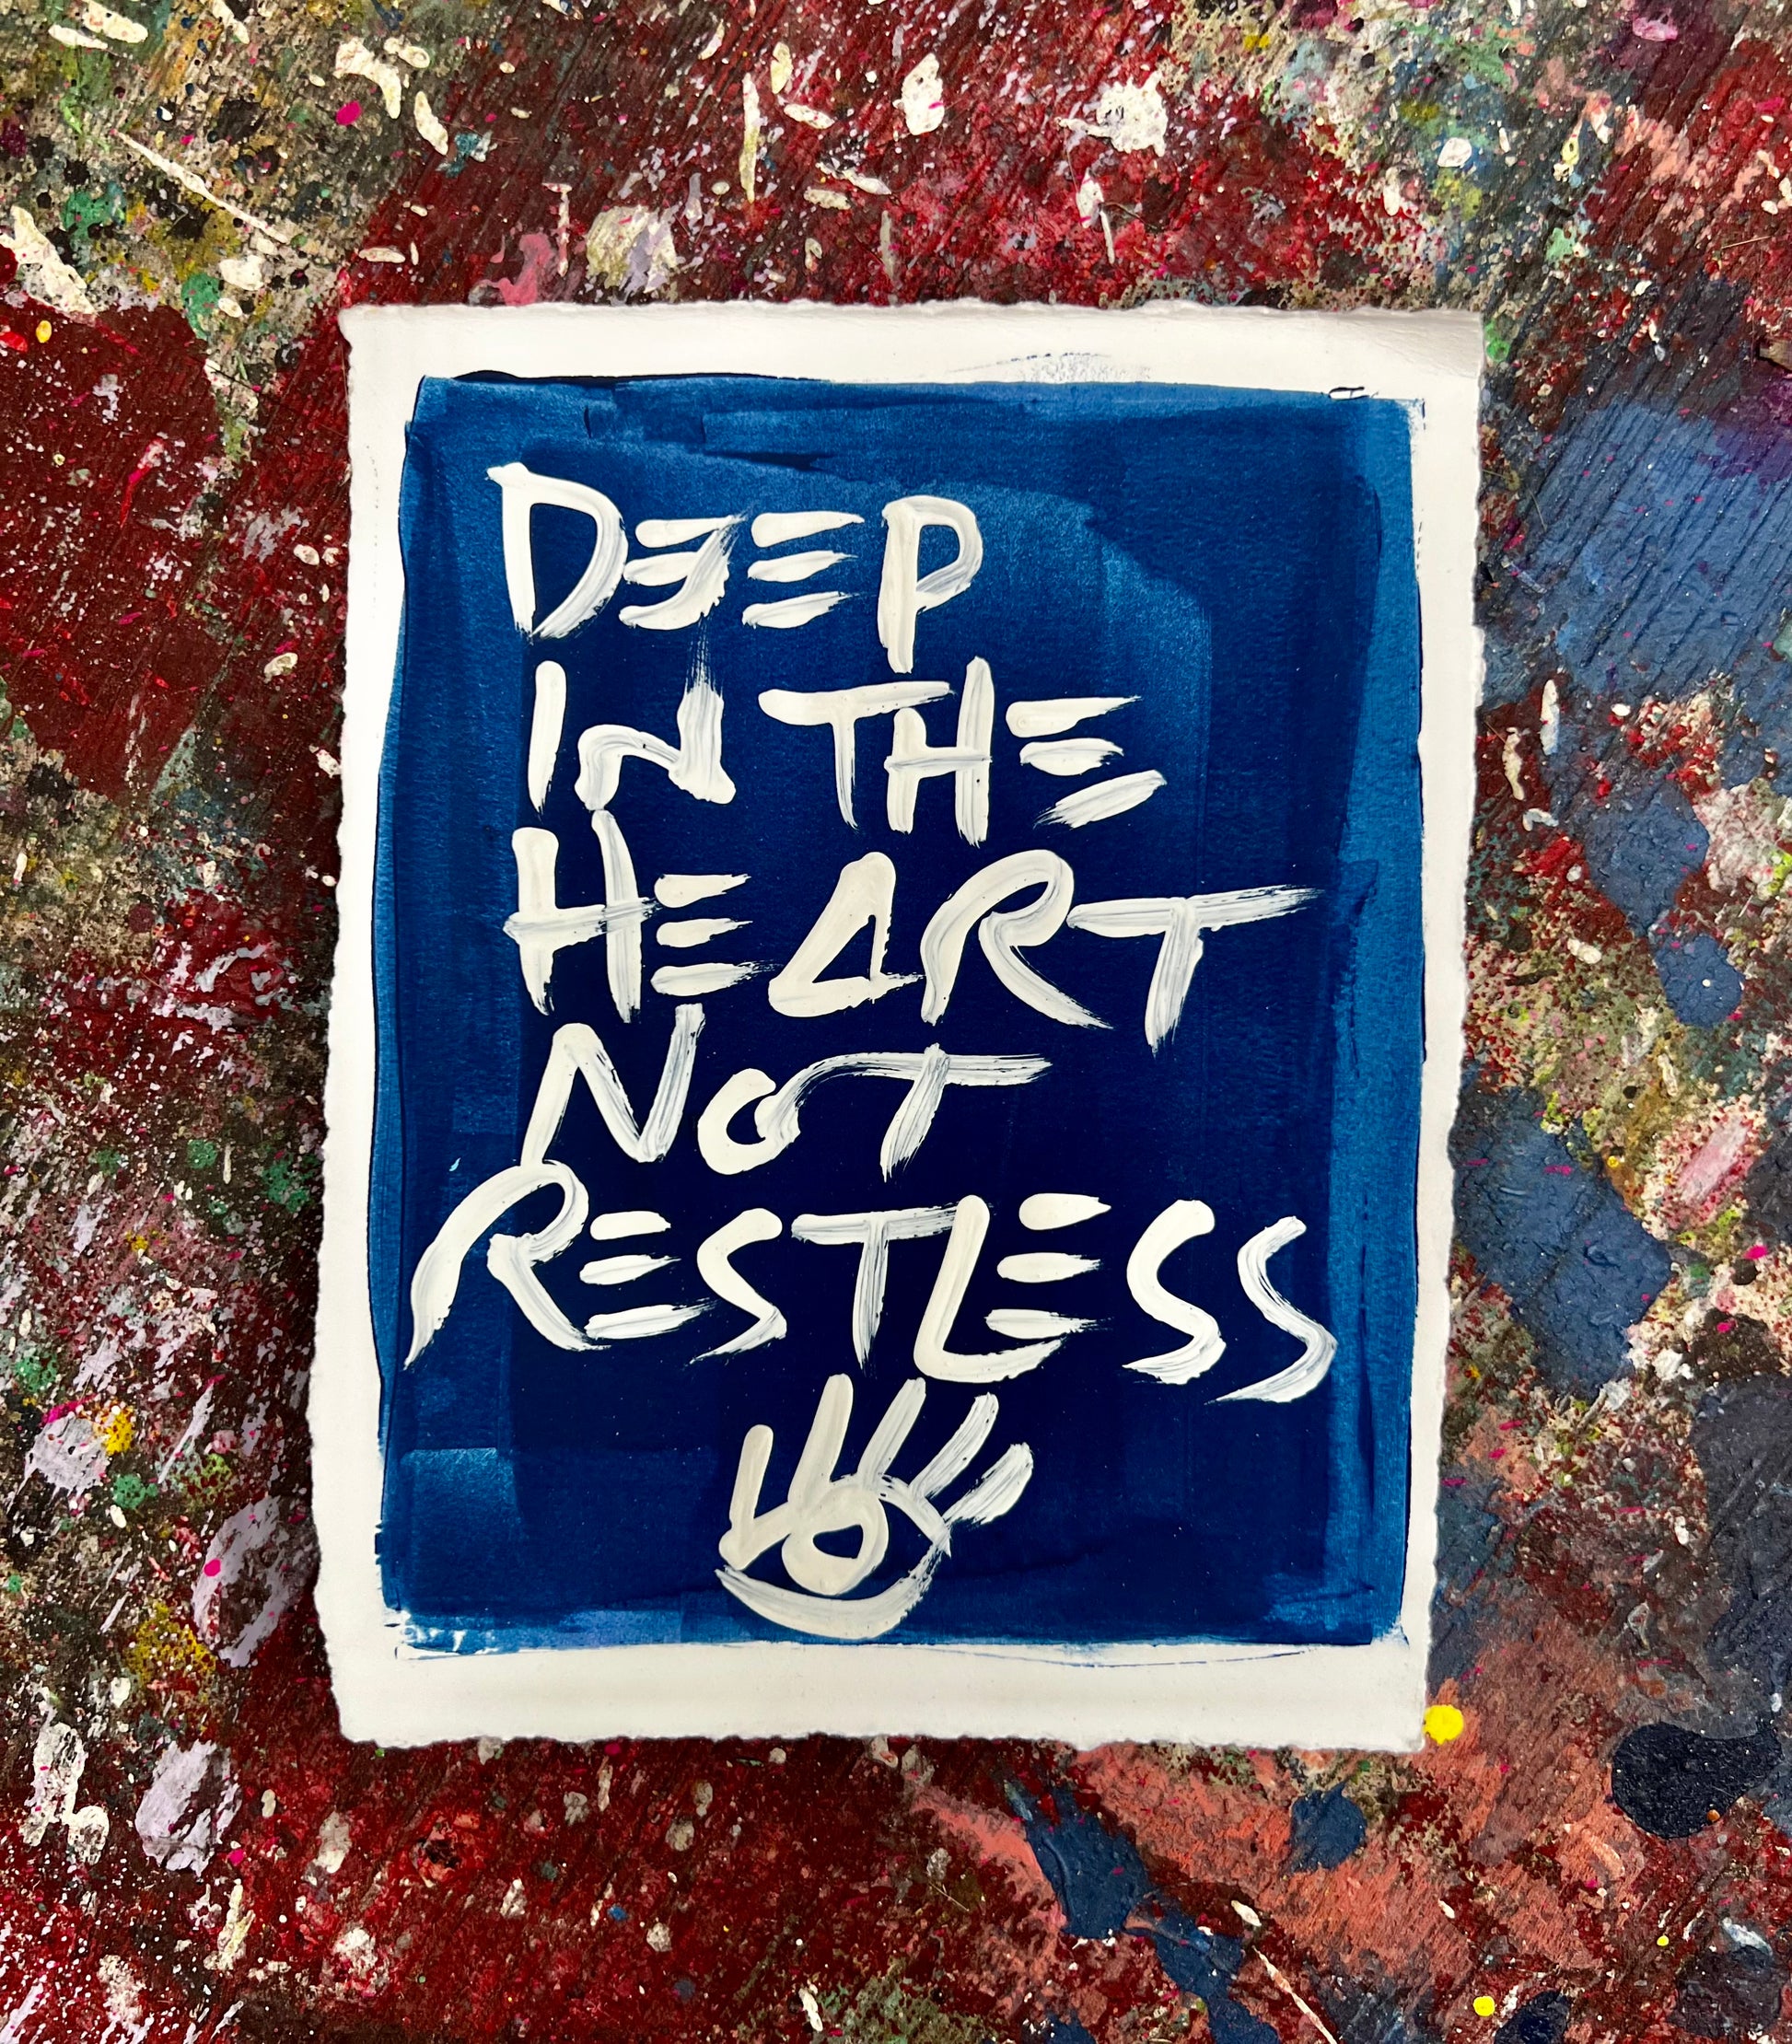 DEEP
IN THE
HEART
NOT
RESTLESS